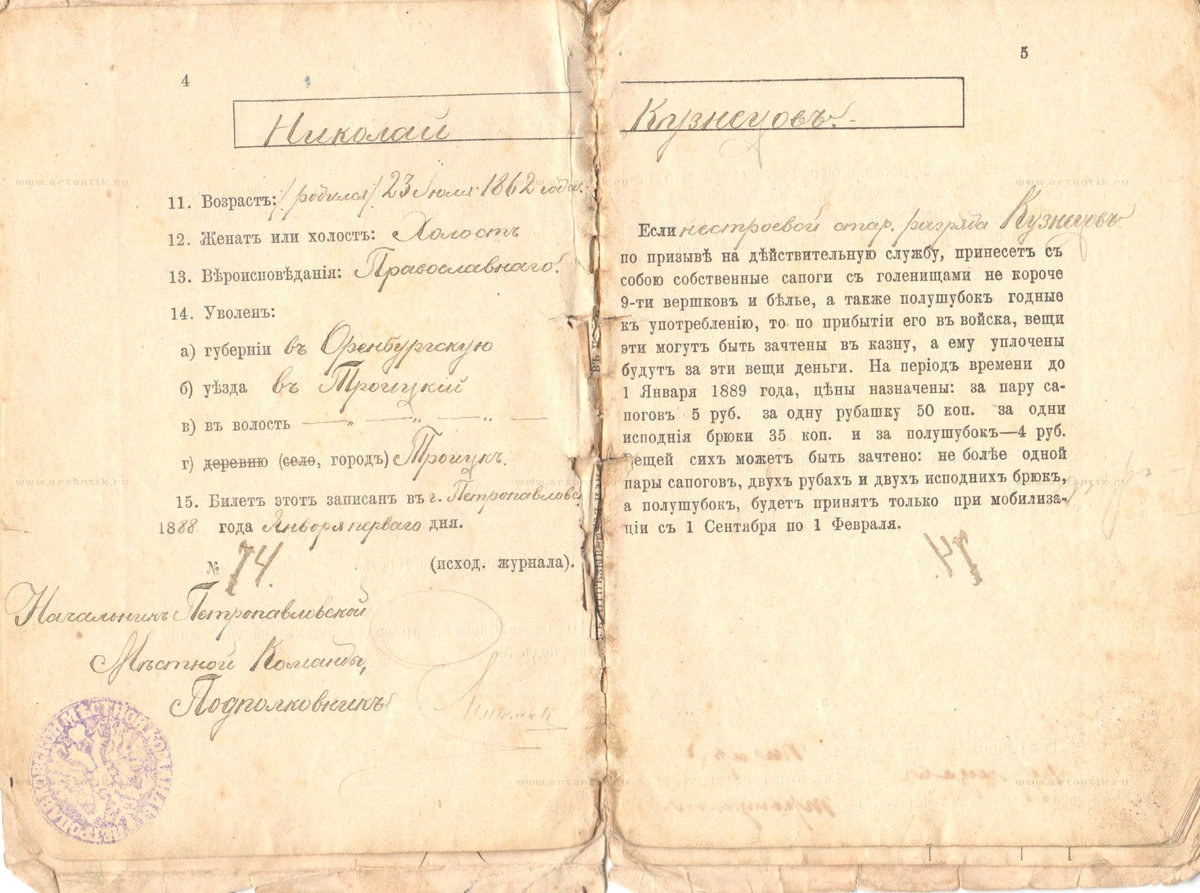 4
Николай
11. Возрастъ: /родился/ 23 Июля 1862 года.
12. Женатъ или холостъ: Холостъ
13. Вѣроисповѣданія: Православнаго.
14. Уволенъ:
а) губерніи въ Оренбургскую
б) уѣзда въ Троицкій
в) въ волость — „ — „ — „ —
г) деревню (село, городъ) Троицкъ.
15. Билетъ этотъ записанъ въ г. Петропавловс
1888 года Января перваго дня.
№ 74. (исход. журнала).
Начальникъ Петропавловской
Мѣстной Команды,
Подполковникъ
5
Кузнецовъ.
Если нестроевой стар. разряда Кузнецовъ
по призывѣ на дѣйствительную службу, принесетъ съ
собою собственные сапоги съ голенищами не короче
9-ти вершковъ и бѣлье, а также полушубокъ годные
къ употребленію, то по прибытіи его въ войска, вещи
эти могутъ быть зачтены въ казну, а ему уплочены
будутъ за эти вещи деньги. На періодъ времени до
1 Января 1889 года, цѣны назначены: за пару са-
поговъ 5 руб. за одну рубашку 50 коп. за одни
исподнія брюки 35 коп. и за полушубокъ—4 руб.
Вещей сихъ можетъ быть зачтено: не болѣе одной
пары сапоговъ, двухъ рубахъ и двухъ исподнихъ брюкъ,
а полушубокъ, будетъ принятъ только при мобилиза-
ціи съ 1 Сентября по 1 Февраля.
www.artantik.ru